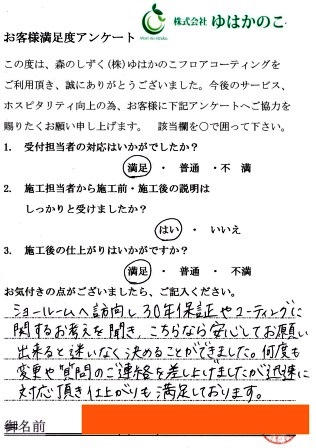 株式会社 ゆはかのこ
お客様満足度アンケート
この度は、森のしずく(株)ゆはかのこフロアコーティングを
ご利用頂き、誠にありがとうございました。今後のサービス、
ホスピタリティ向上の為、お客様に下記アンケートへご協力を
賜りたくお願い申し上げます。 該当欄を○で囲って下さい。
1. 受付担当者の対応はいかがでしたか？
満足 ・ 普通 ・ 不 満
2. 施工担当者から施工前・施工後の説明は
しっかりと受けましたか？
はい ・ いいえ
3. 施工後の仕上がりはいかがですか？
満足 ・ 普通 ・ 不満
お気付きの点がございましたら、ご記入ください。
ショールームへ訪向し30年保証やコーティングに
関するお考えを聞き、こちらなら安心してお願い
出来ると迷いなく決めることができました。何度も
変更や質問のご連絡を差し上げましたが迅速に
対応頂き仕上がりも満足しております。
御名前